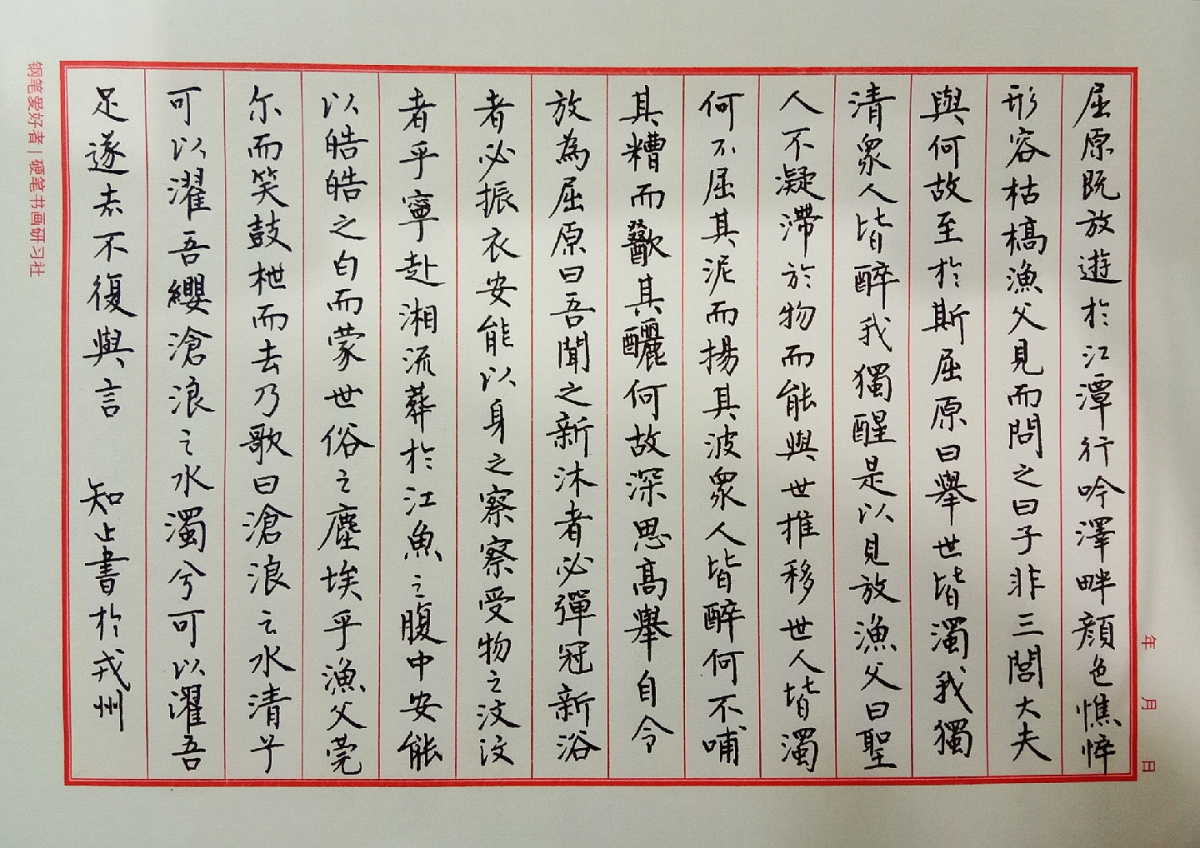 屈原既放遊於江潭行吟澤畔顔色憔悴
形容枯槁漁父見而問之曰子非三閭大夫
與何故至於斯屈原曰舉世皆濁我獨
清衆人皆醉我獨醒是以見放漁父曰聖
人不凝滯於物而能與世推移世人皆濁
何不屈其泥而揚其波衆人皆醉何不哺
其糟而歠其釃何故深思高舉自令
放為屈原曰吾聞之新沐者必彈冠新浴
者必振衣安能以身之察察受物之汶汶
者乎寧赴湘流葬於江魚之腹中安能
以皓皓之白而蒙世俗之塵埃乎漁父莞
尔而笑鼓枻而去乃歌曰滄浪之水清兮
可以濯吾纓滄浪之水濁兮可以濯吾
足遂去不復與言 知止書於戎州
年 月 日
钢笔爱好者|硬笔书画研习社